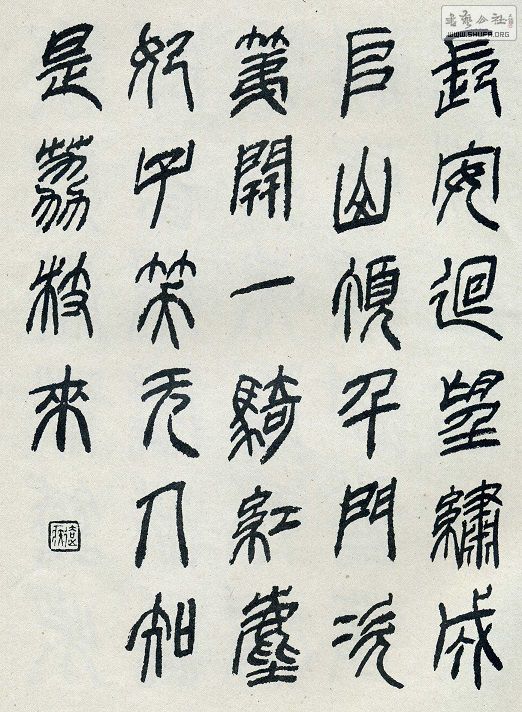 長安迴望繡成
𠂤山頂千門次
第開一騎紅塵
妃子笑无人知
是荔枝來
書藝公社
WWW.SHUFA.ORG